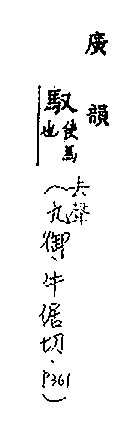 廣韻
馭使馬也
(去聲九御、牛倨切.P361)